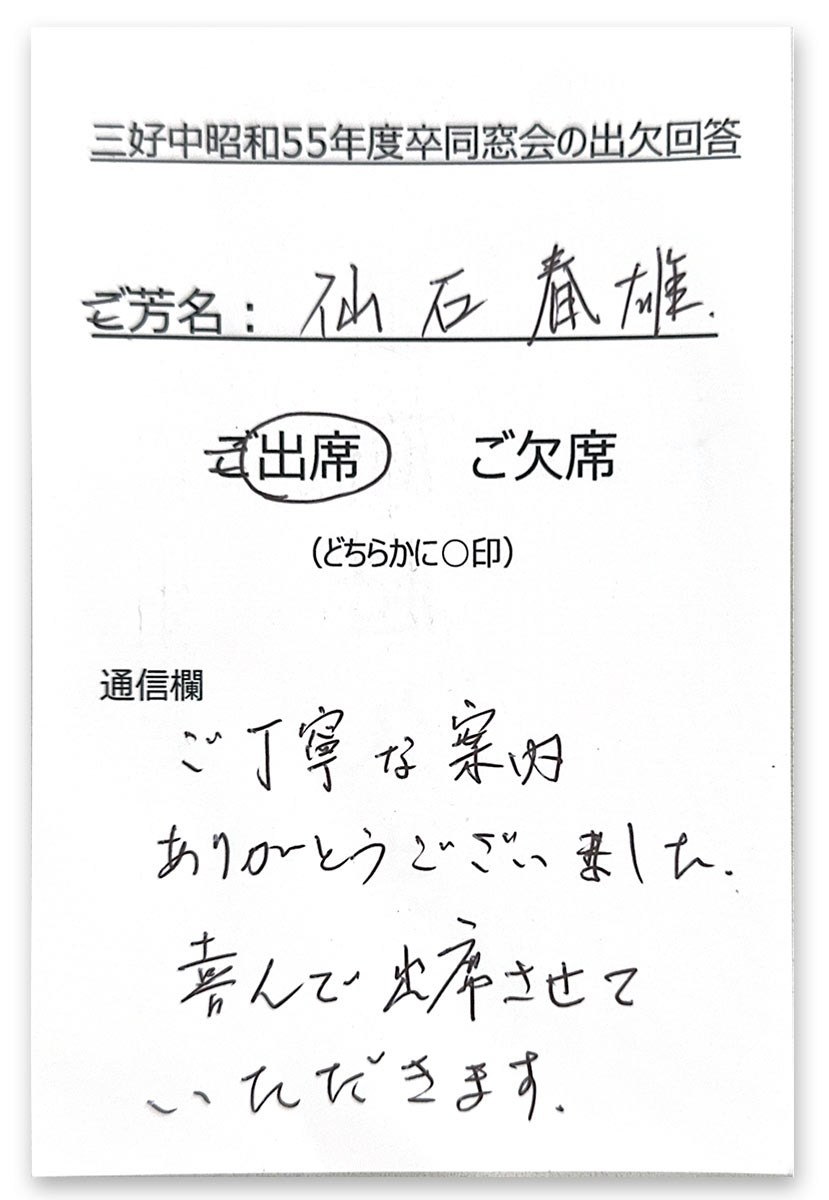 三好中昭和55年度卒同窓会の出欠回答
ご芳名： 仙石春雄.
ご出席 ご欠席
（どちらかに○印）
通信欄
ご丁寧な案内
ありがとうございました.
喜んで出席させて
いただきます.